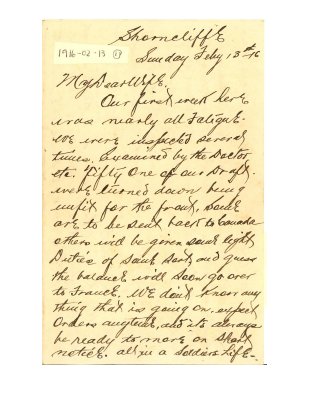 Shorncliffe
Sunday Feby 13th 16
1916-02-13 (1)
My Dear Wife.
Our first week here
was nearly all Fatigue.
We were inspected several
times. Examined by the Doctor
etc. Fifty One of our Draft.
were turned down being
unfit for the front, some
are to be sent back to Canada
others will be given some light
Duties of some sort, and guess
the balance will soon go over
to France. We dont know any
thing that is going on, expect
Orders anytime, and its always
be ready to move on short
notice. all in a Soldiers Life-